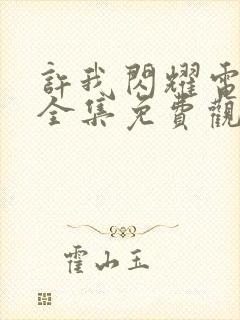 許我閃耀電
全集免費觀
霍山玉